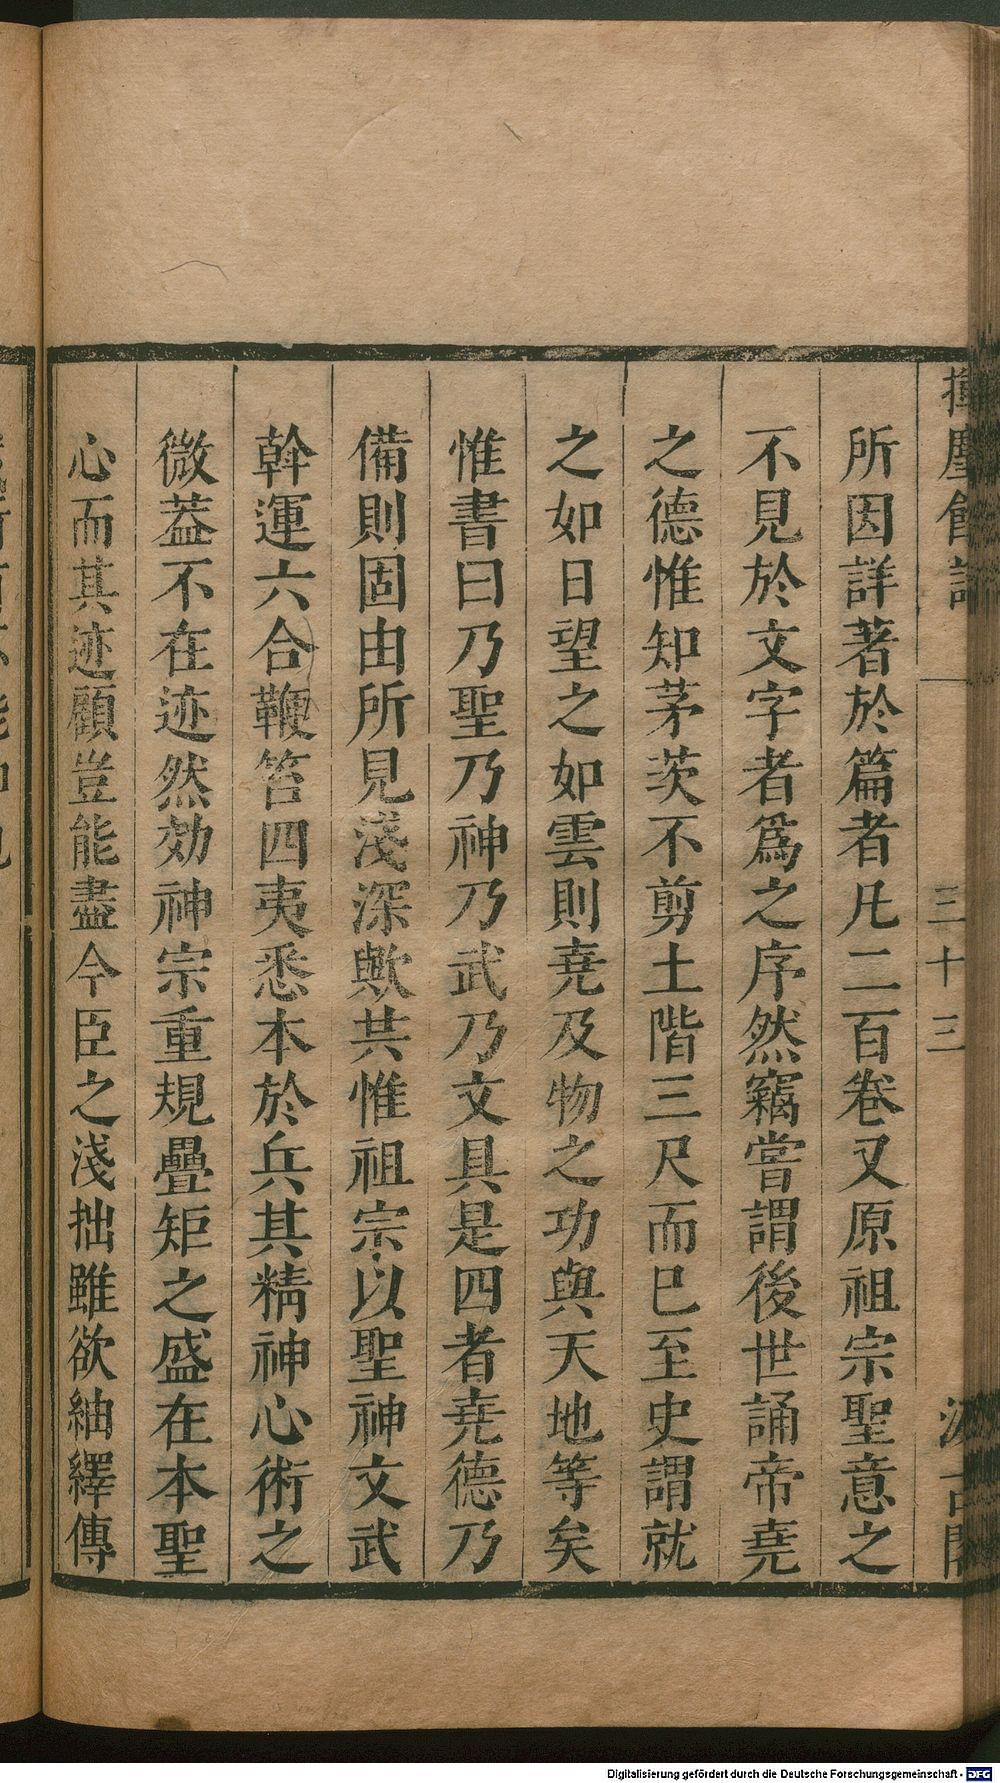 揮麈餘話 一 三十三 汲古閣
所因詳著於篇者凡二百卷又原祖宗聖意之
不見於文字者爲之序然竊嘗謂後世誦帝堯
之德惟知茅茨不剪土階三尺而巳至史謂就
之如日望之如雲則堯及物之功與天地等矣
惟書曰乃聖乃神乃武乃文具是四者堯德乃
備則固由所見淺深歟共惟祖宗以聖神文武
斡運六合鞭笞四夷悉本於兵其精神心術之
微葢不在迹然効神宗重規疊矩之盛在本聖
心而其迹顧豈能盡今臣之淺拙雖欲紬繹傳
Digitalisierung gefördert durch die Deutsche Forschungsgemeinschaft - DFG